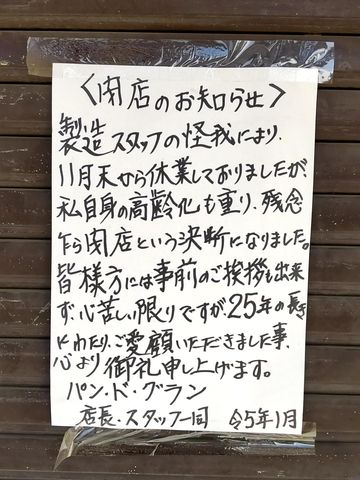 〈閉店のお知らせ〉
製造スタッフの怪我により、
11月末から休業しておりましたが、
私自身の高齢化も重り、残念
乍ら閉店という決断になりました。
皆様方には事前のご挨拶も出来
ず、心苦しい限りですが25年の長き
にわたり、ご愛顧いただきました事、
心より御礼申し上げます。
パン・ド・グラン
店長・スタッフ一同 令5年1月